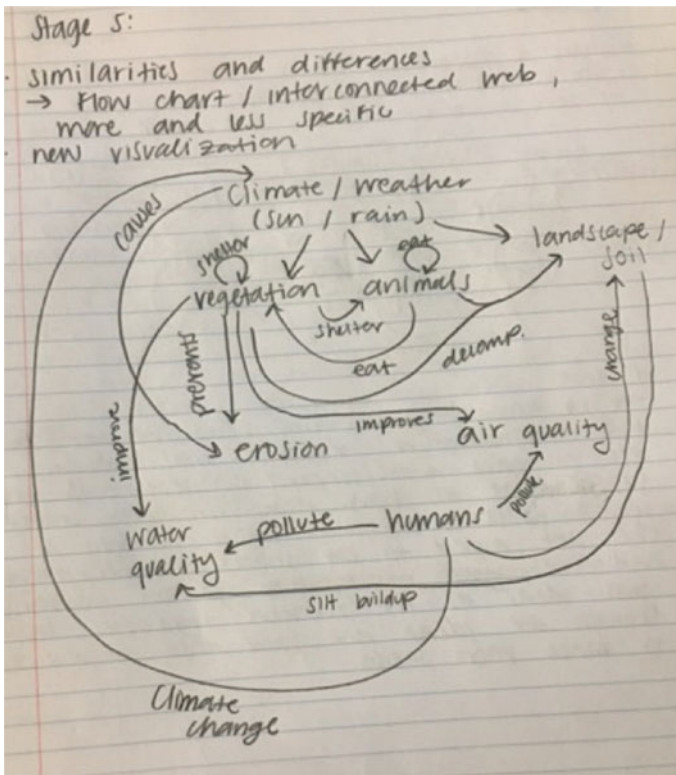 Stage 5:
· similarities and differences
→ Flow chart / interconnected web,
more and less specific
· new visualization
climate / weather
(sun / rain)
causes
landscape /
soil
shelter
eat
vegetation
animals
shelter
eat
decomp.
change
prevents
improve
improves
erosion
air quality
pollute
water
quality
pollute
humans
silt buildup
Climate
change